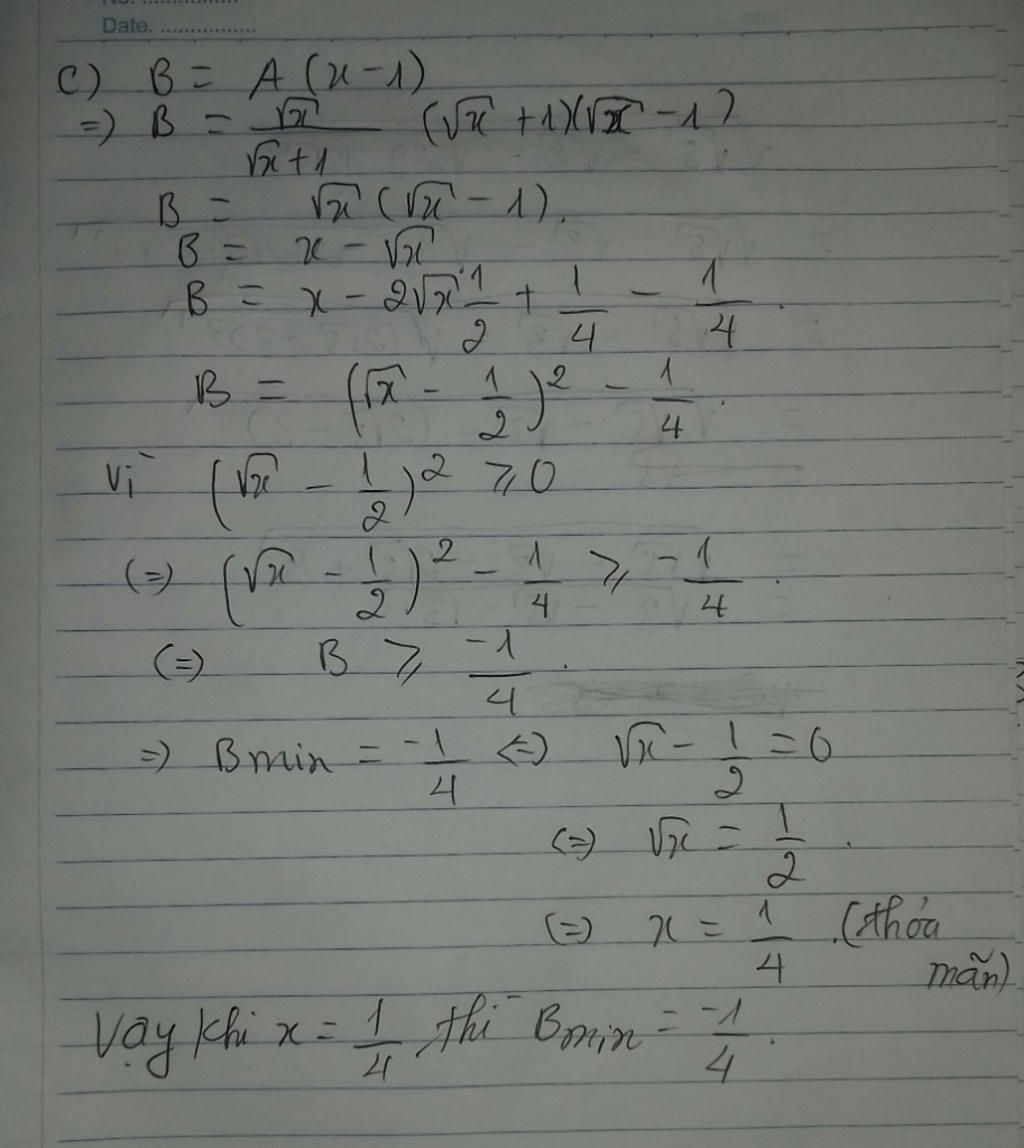 Date. ................
c) B = A (x - 1)
=) B = √x / (√x + 1) (√x + 1)(√x - 1)
B = √x (√x - 1).
B = x - √x
B = x - 2√x · 1/2 + 1/4 - 1/4.
B = (√x - 1/2)² - 1/4.
Vì (√x - 1/2)² ⩾ 0
(=) (√x - 1/2)² - 1/4 ⩾ -1/4.
(=) B ⩾ -1/4.
=) Bmin = -1/4 <=> √x - 1/2 = 0
(=) √x = 1/2.
(=) x = 1/4. (thỏa
mãn)
Vậy khi x = 1/4 thì Bmin = -1/4.